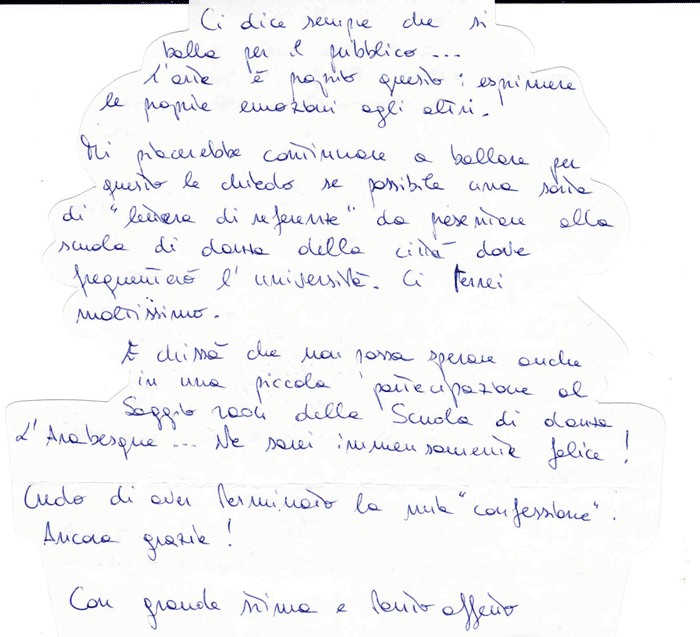 Ci dice sempre che si
balla per il pubblico ...
L'arte è proprio questo: esprimere
le proprie emozioni agli altri.
Mi piacerebbe continuare a ballare per
questo le chiedo se possibile una sorta
di "lettera di referenze" da presentare alla
scuola di danza della città dove
frequenterò l'università. Ci terrei
moltissimo.
E chissà che non possa sperare anche
in una piccola partecipazione al
Saggio 2001 della Scuola di danza
L'Arabesque ... Ne sarei immensamente felice!
Credo di aver terminato la mia "confessione".
Ancora grazie!
Con grande stima e tanto affetto